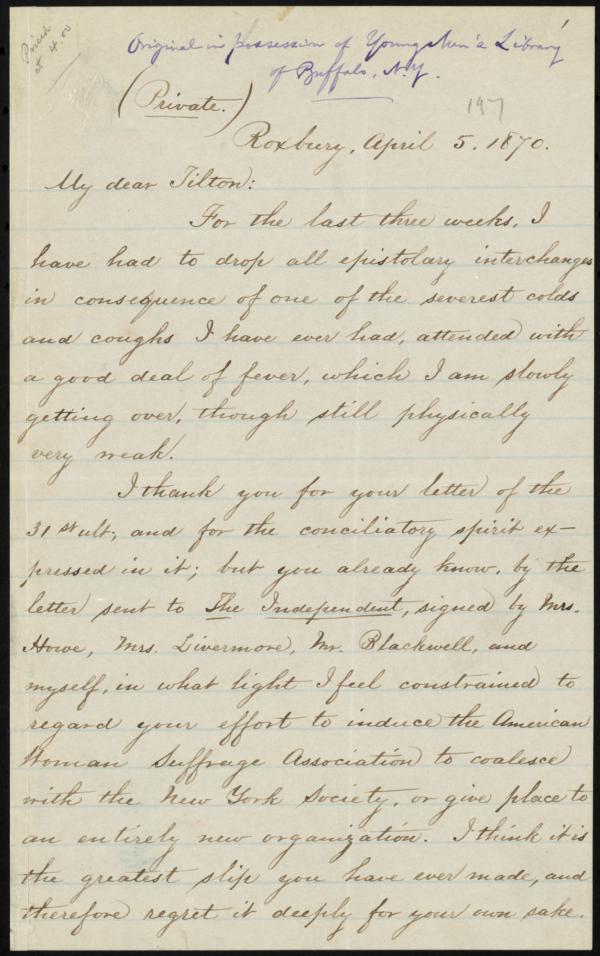 Priced
at 4.00
1
Original in possession of Young Men's Library
of Buffalo, N.Y.
(Private.)
197
Roxbury, April 5. 1870.
My dear Tilton:
For the last three weeks, I
have had to drop all epistolary interchanges
in consequence of one of the severest colds
and coughs I have ever had, attended with
a good deal of fever, which I am slowly
getting over, though still physically
very weak.
I thank you for your letter of the
31st ult; and for the conciliatory spirit ex-
pressed in it; but you already know, by the
letter sent to The Independent, signed by Mrs.
Howe, Mrs. Livermore, Mr. Blackwell, and
myself, in what light I feel constrained to
regard your effort to induce the American
Woman Suffrage Association to coalesce
with the New York Society, or give place to
an entirely new organization. I think it is
the greatest slip you have ever made, and
therefore regret it deeply for your own sake.